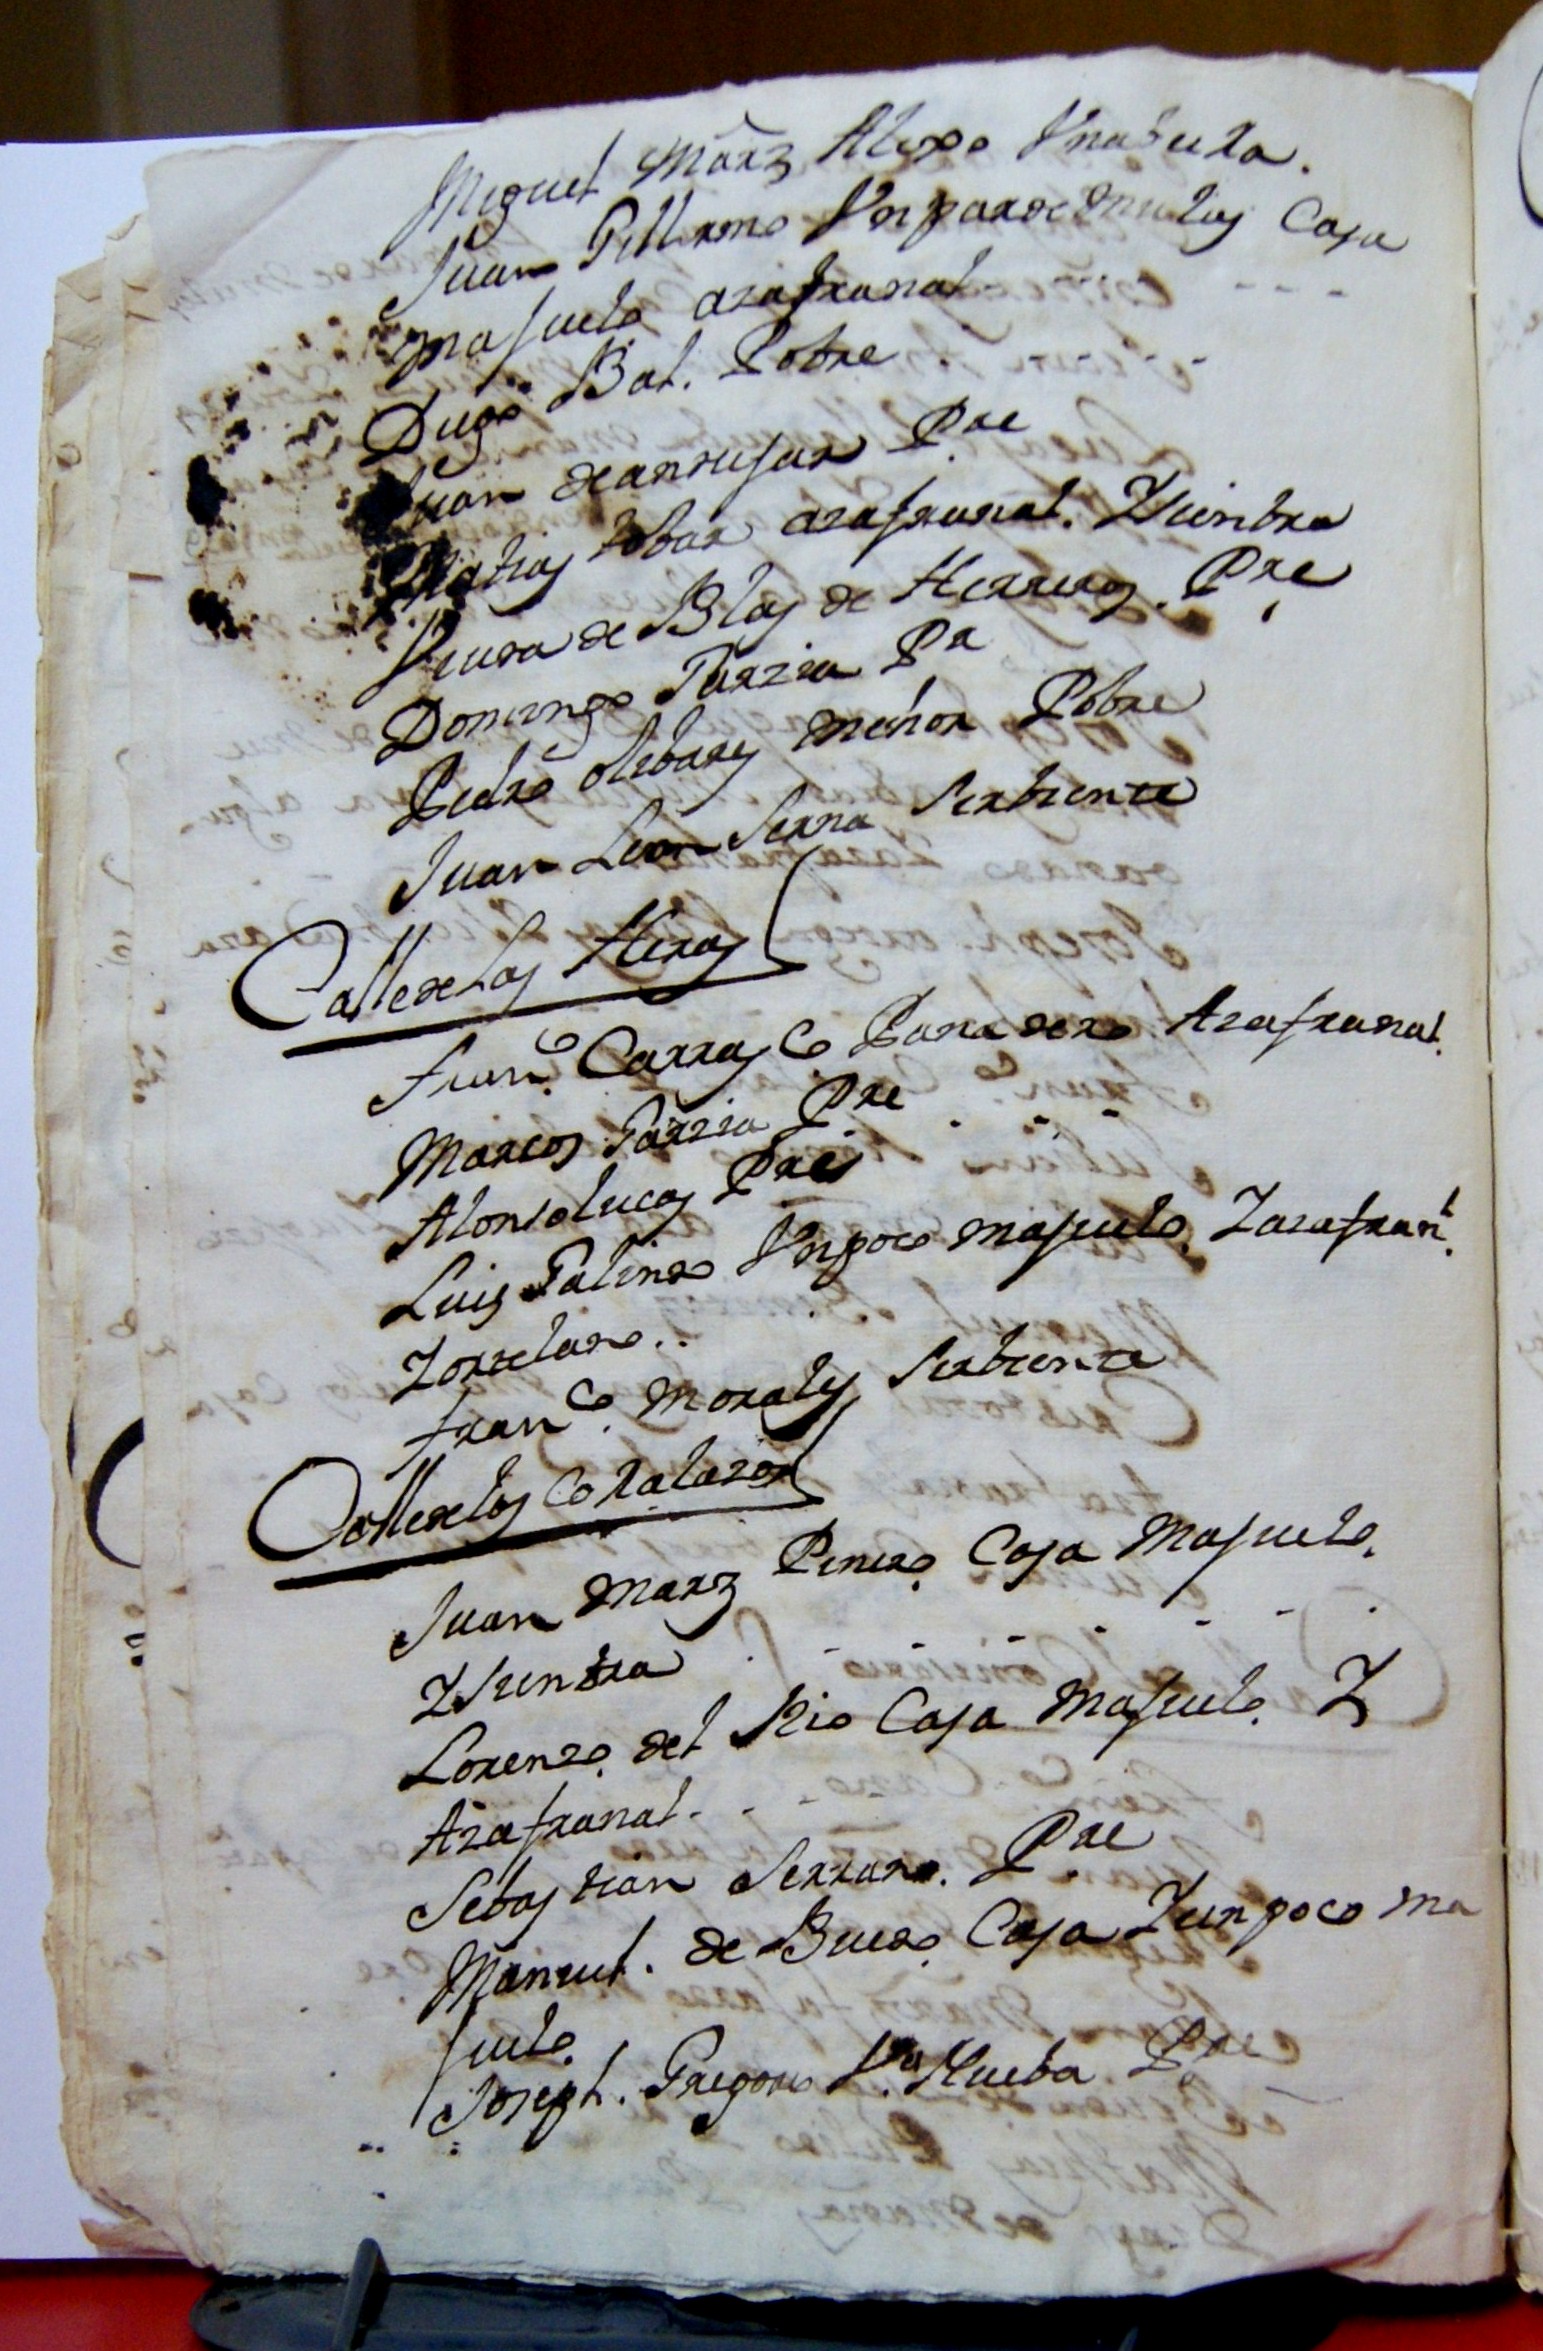 Miguel Marz Alexo Vna burra.
Juan Gillermo Vn par de mulas Casa
majuelo azafranal
Diego Bal. Pobre
Juan de andujar P.re
Matias tobar azafranal. Y siembra
Viuda de Blas de Herreros. P.re
Domingo Garzia P.a
Pedro olibares menor Pobre
Juan Leon Serna Serbiente
Calle de Las Heras
Fran.co Carrasco Panadero Azafranal.
Marcos Garzia P.re
Alonso lucas P.re
Luis Galindo Vn poco majuelo. Y azafran.l
Y orzelano..
fran.co Morales Serbiente
Calle de los Corralazos
Juan Marz Pinero. Casa Majuelo.
Y siembra
Lorenzo. del Rio Casa Majuelo. Y
Azafranal.
Sebastian Serrano. P.re
Manuel. de Buedo. Casa Y un poco ma
juelo.
Joseph. Gregorio V.a Hueba P.re